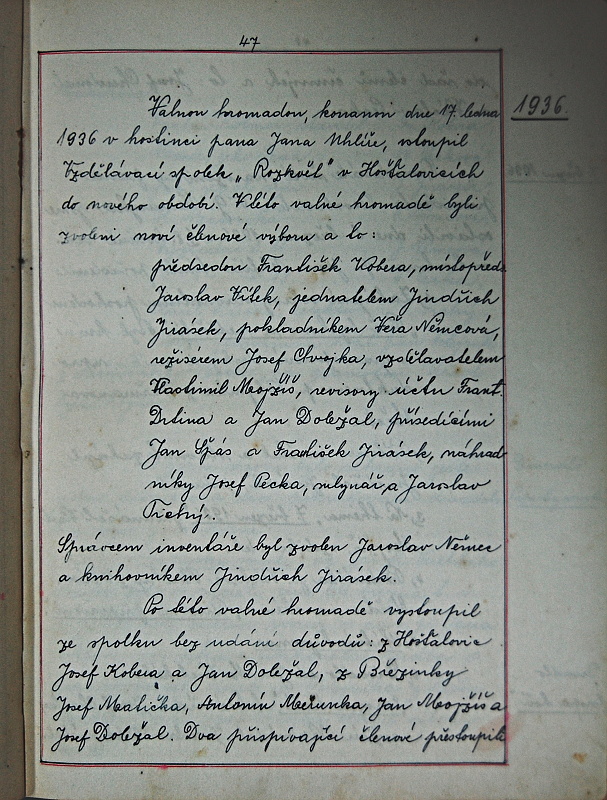 47
1936
Valnou hromadou, konanou dne 17. ledna
1936 v hostinci pana Jana Uhlíře, vstoupil
Vzdělávací spolek „Rozkvět" v Hošťalovicích
do nového období. V této valné hromadě byli
zvoleni noví členové výboru a to:
předsedou František Kobera, místopředs.
Jaroslav Vítek, jednatelem Jindřich
Jirásek, pokladníkem Věra Němcová,
režisérem Josef Chvojka, vzdělavatelem
Vlastimil Mojžíš, revisory účtu Frant.
Drtina a Jan Doležal, přísedícími
Jan Spás a František Jirásek, náhrad
níky Josef Pecka, mlynář, a Jaroslav
Správcem inventáře byl zvolen Jaroslav Němec
a knihovníkem Jindřich Jirásek.
Po této valné hromadě vystoupil
ze spolku bez udání důvodů: z Hošťalovic
Josef Kobera a Jan Doležal, z Březinky
Josef Matička, Antonín Meřunka, Jan Mojžíš a
Josef Doležal. Dva přispívající členové přestoupili